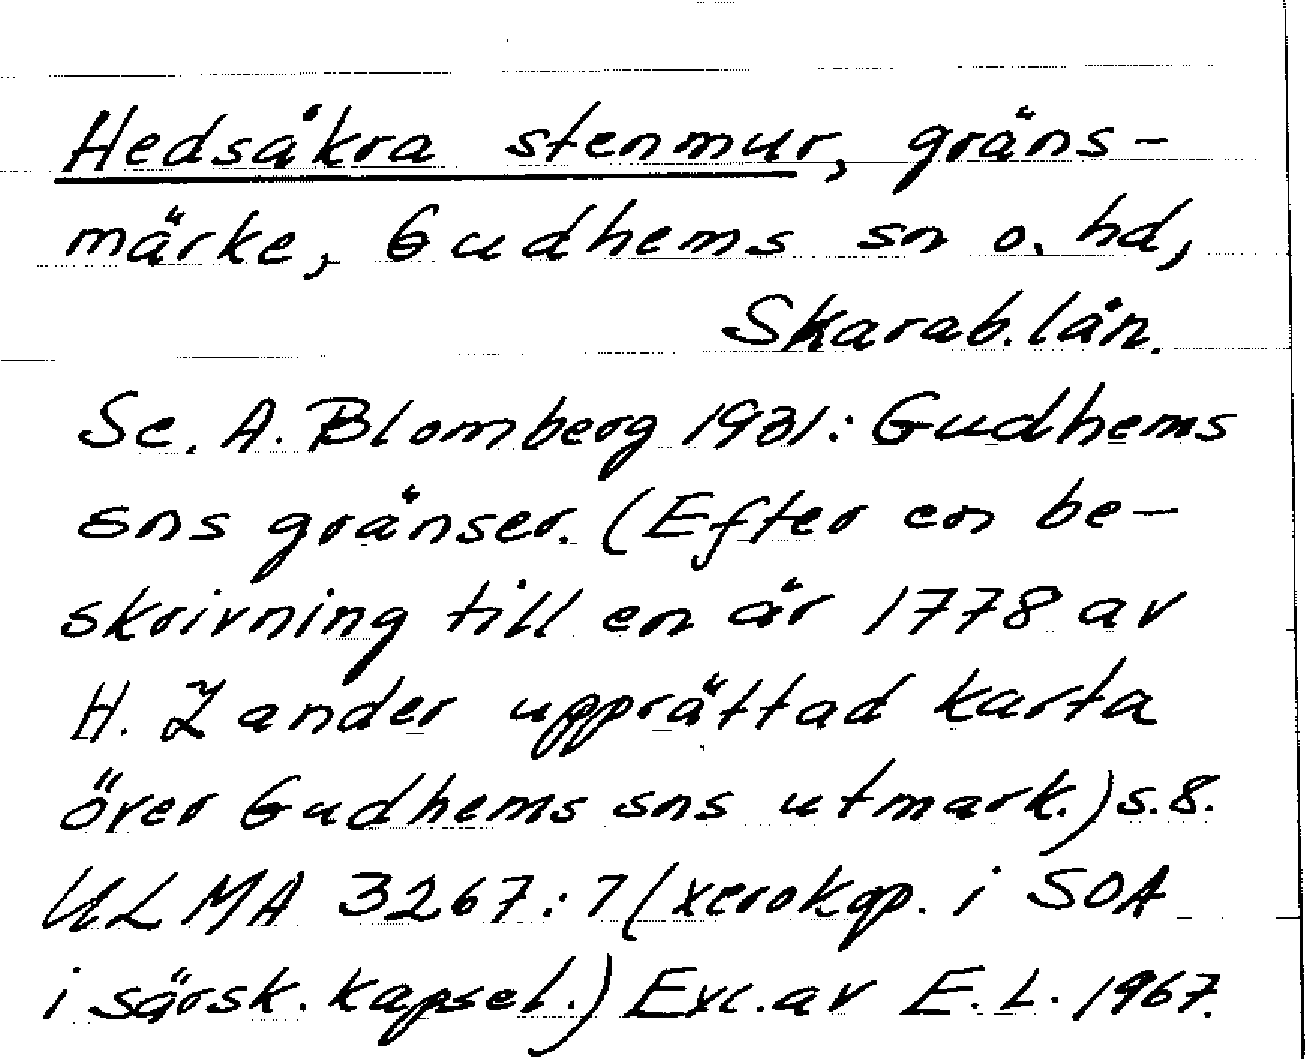 Hedsåkra stenmur, gräns-
märke, Gudhems sn o. hd,
Skarab. län.
Se. A. Blomberg 1931: Gudhems
sns gränser. (Efter en be-
skrivning till en år 1778 av
H. Zander upprättad karta
över Gudhems sns utmark.) s. 8.
ULMA 3267:7 (xerokop. i SOA
i särsk. kapsel.) Exc. av E. L. 1967.